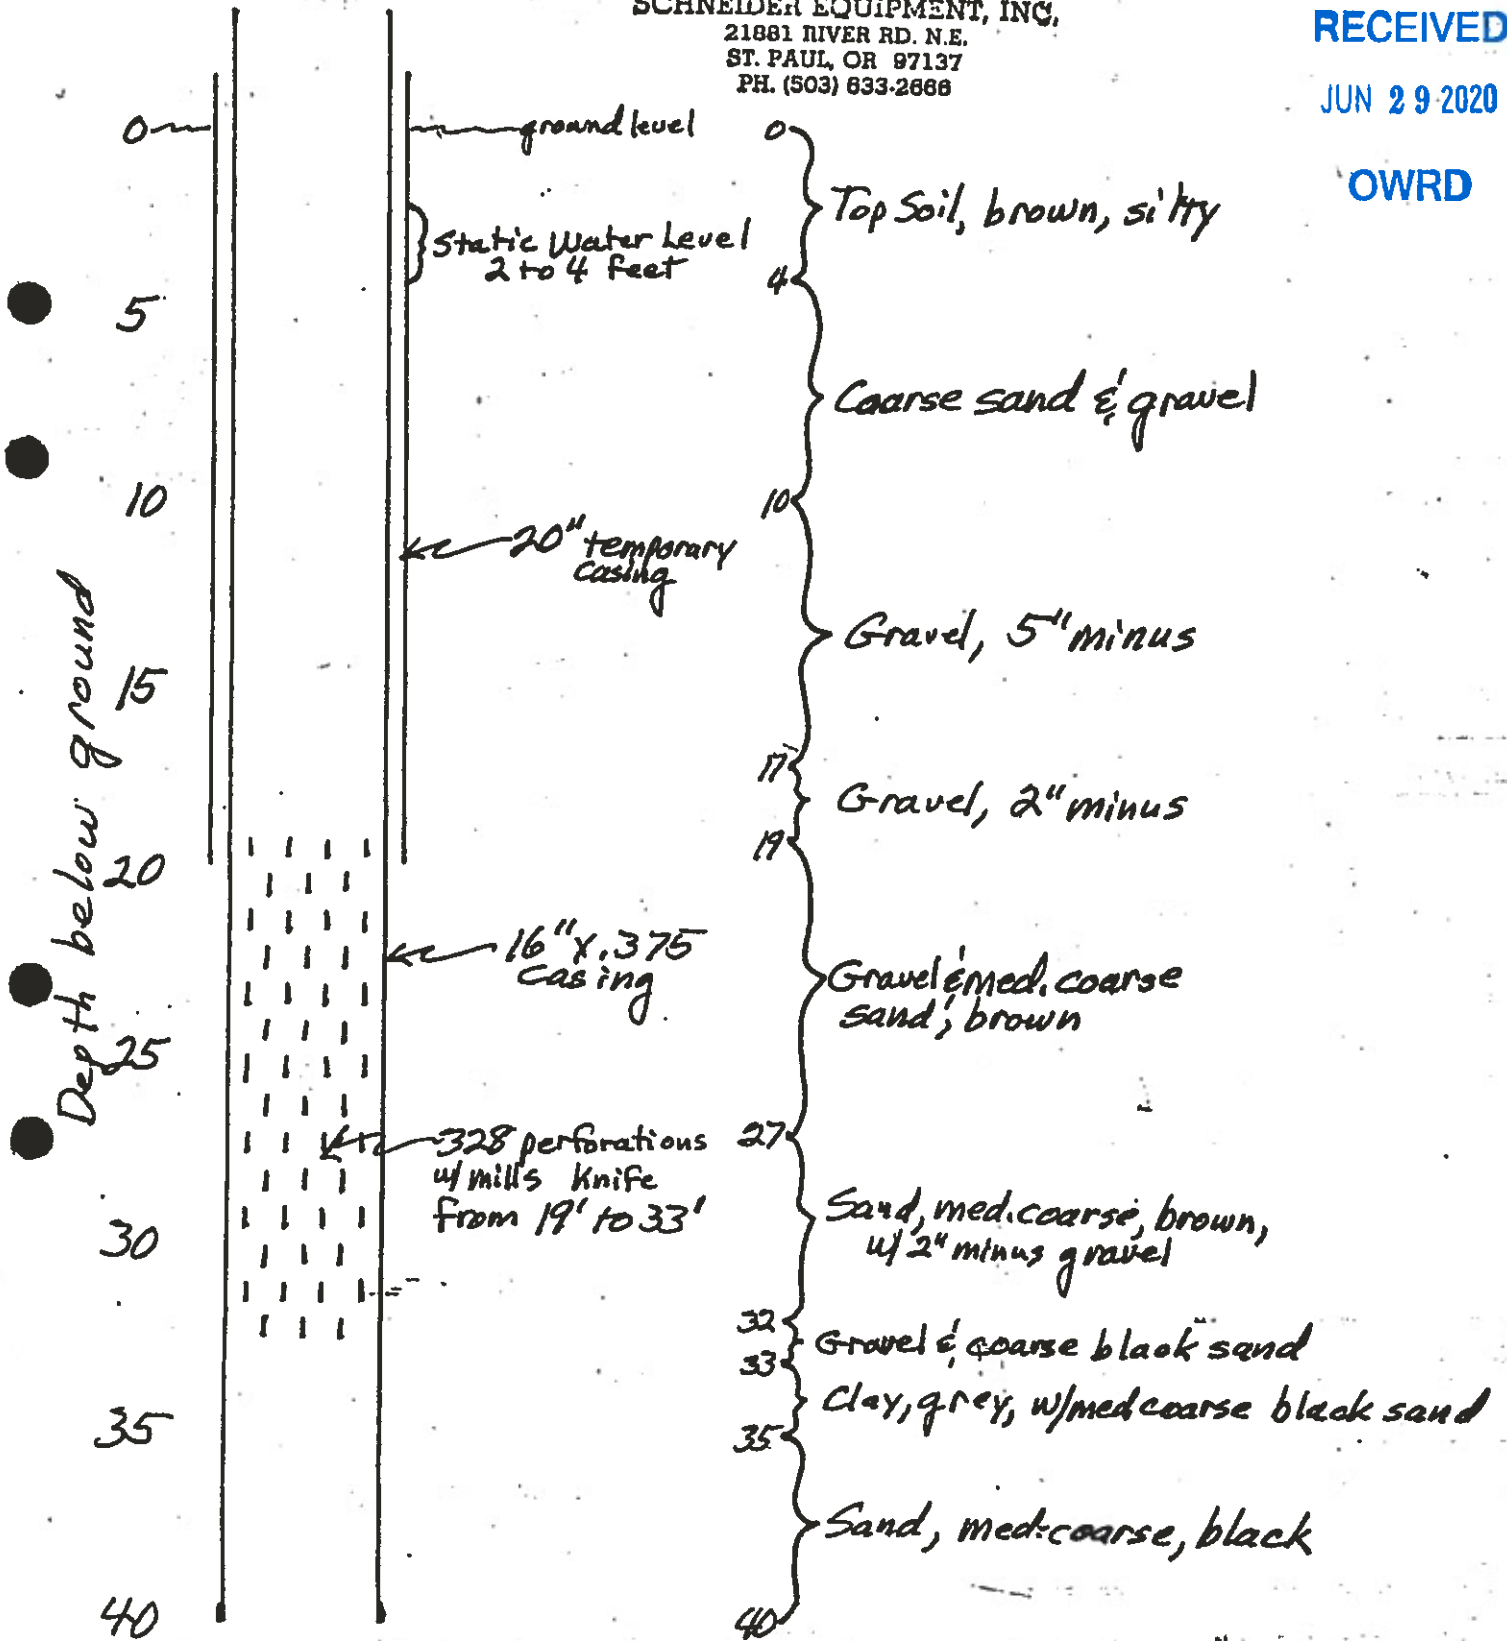 SCHNEIDER EQUIPMENT, INC.
21881 RIVER RD. N.E.
ST. PAUL, OR 97137
PH. (503) 633-2666
RECEIVED
JUN 29 2020
OWRD
0
ground level
Static Water Level
2 to 4 feet
5
10
20" temporary
casing
15
20
16" x .375
Casing
25
328 perforations
w/ mills knife
from 19' to 33'
30
35
40
Depth below ground
0
Top Soil, brown, silty
4
Coarse sand & gravel
10
Gravel, 5" minus
17
Gravel, 2" minus
19
Gravel & med. coarse
sand, brown
27
Sand, med. coarse, brown,
w/ 2" minus gravel
32
Gravel & coarse black sand
33
Clay, grey, w/med coarse black sand
35
Sand, med. coarse, black
40